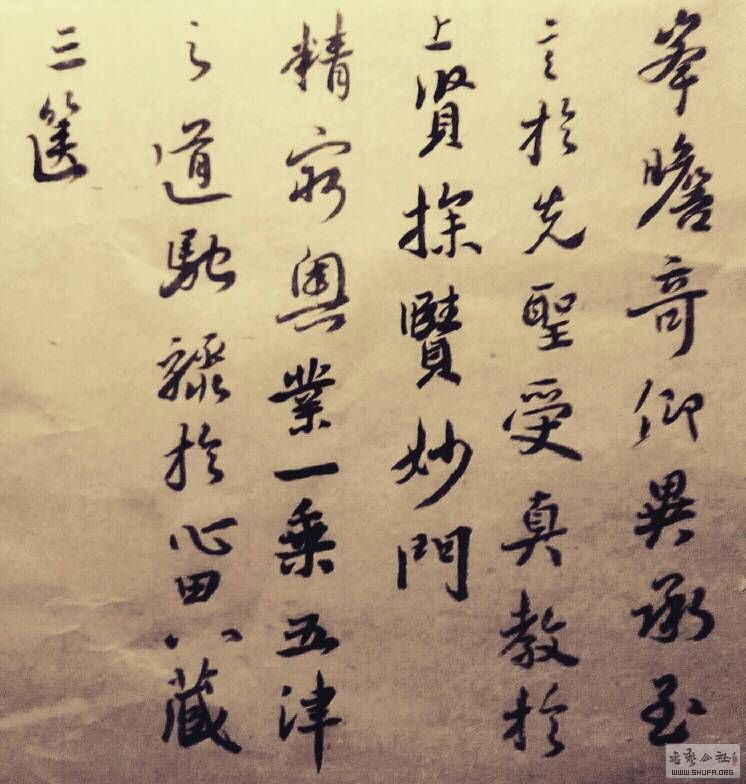 峯瞻奇仰異承至
言於先聖受真教於
上賢探賾妙門
精窮奧業一乘五律
之道馳驟於心田八藏
三篋
书艺公社
WWW.SHUFA.ORG